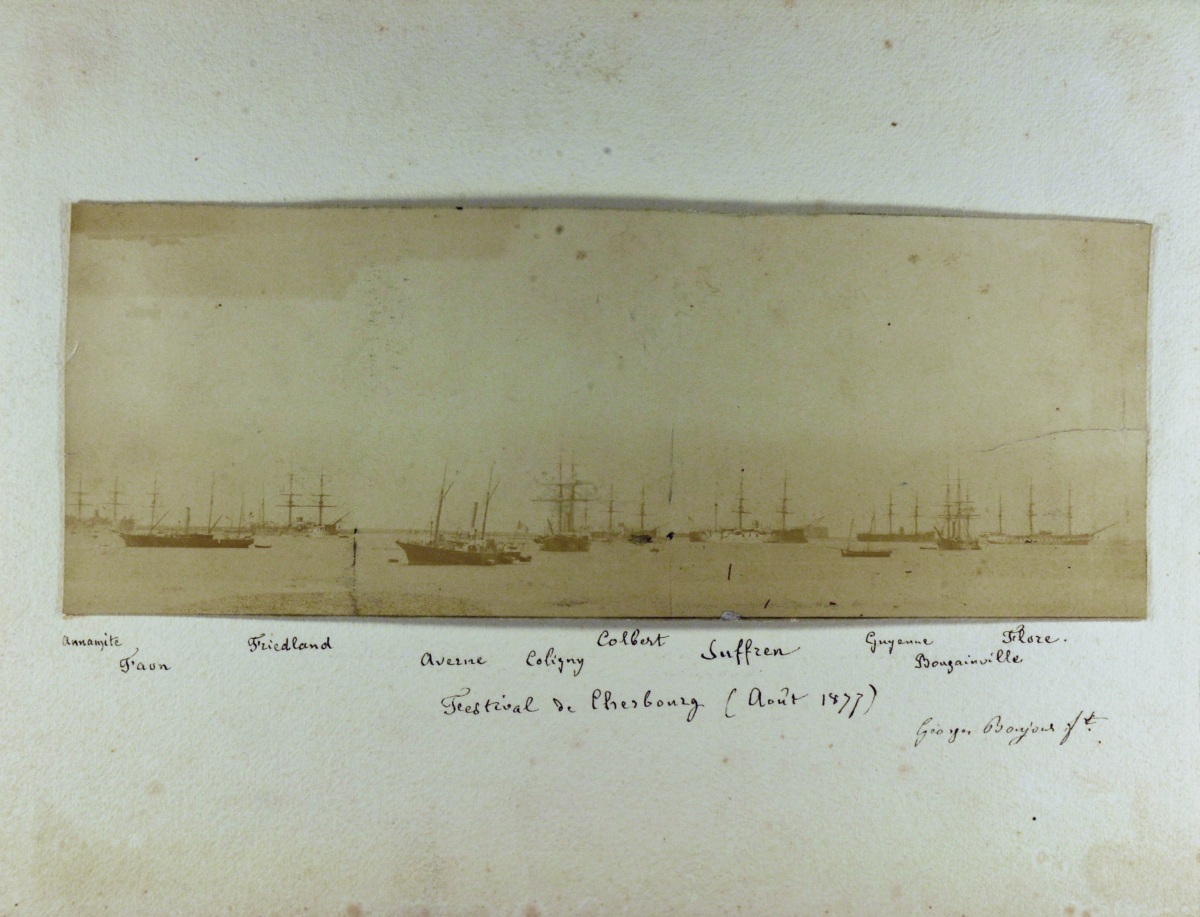 Annamite
Faon
Friedland
Averne
Coligny
Colbert
Suffren
Guyenne
Bougainville
Flore.
Festival de Cherbourg (Août 1877)
Georges